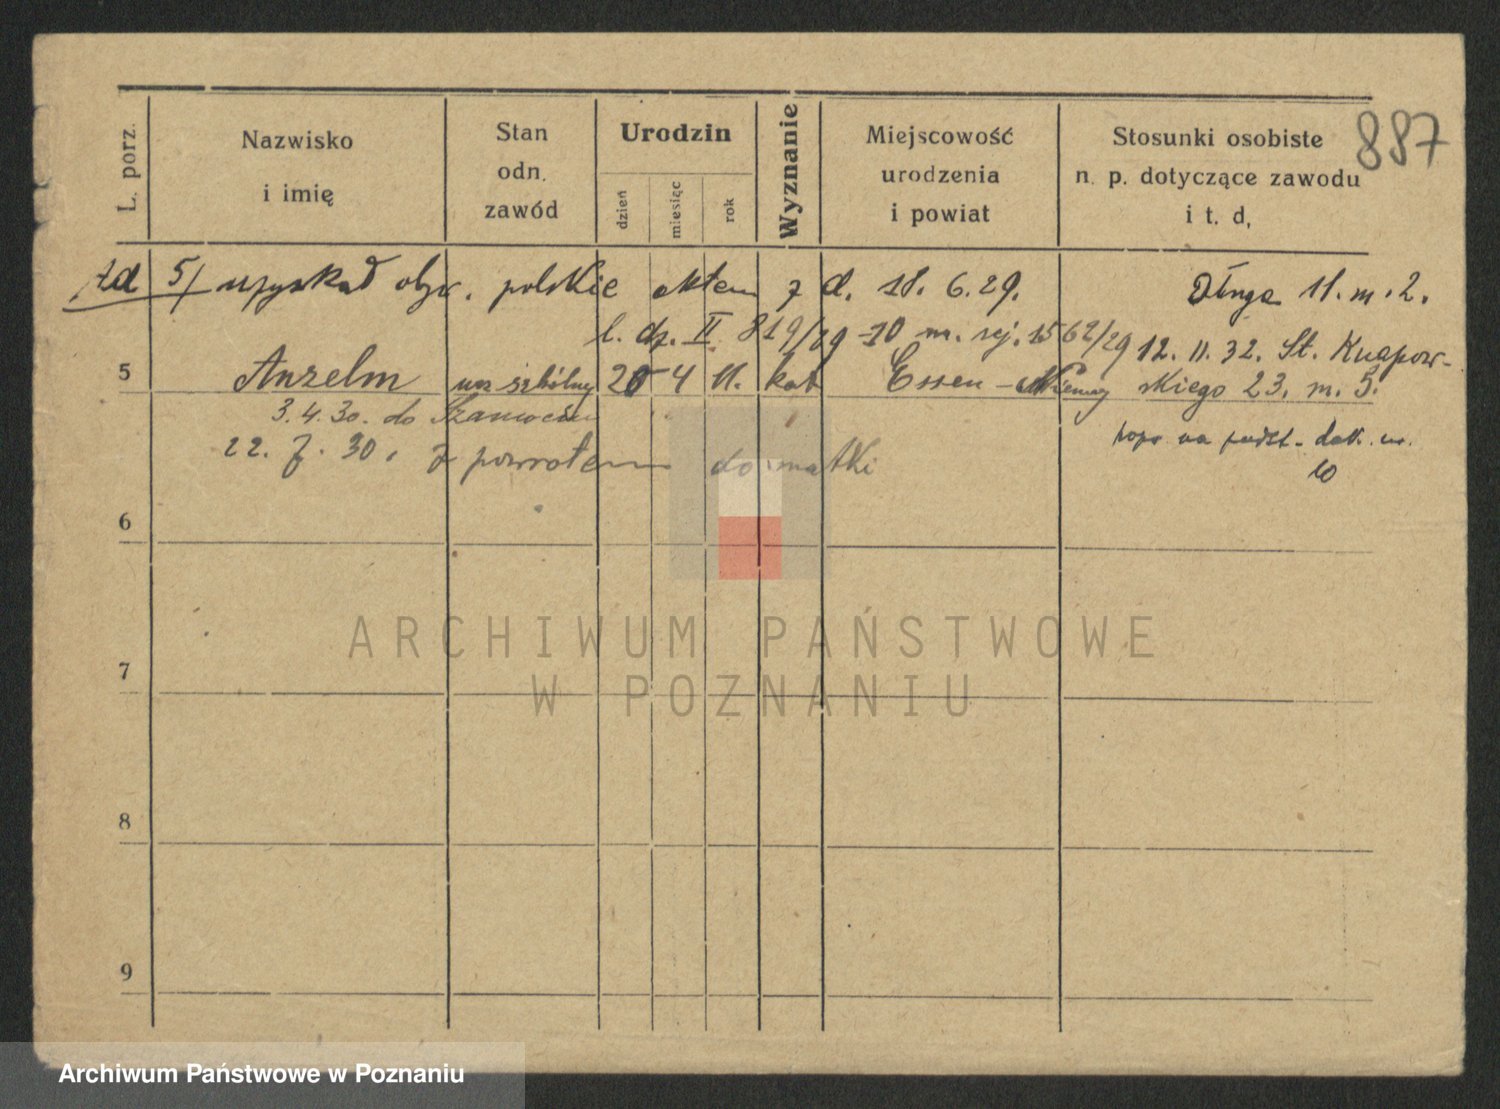 887
L. porz.
Nazwisko
i imię
Stan
odn.
zawód
Urodzin
dzień
miesiąc
rok
Wyznanie
Miejscowość
urodzenia
i powiat
Stosunki osobiste
n. p. dotyczące zawodu
i t. d,
Ad 5/ uzyskał obyw. polskie aktem z d. 18. 6. 29.
l. dz. II 819/29 m. rej. 1562/29
Długa 11. m. 2.
12. 11. 32. St. Knapow-
skiego 23. m. 5.
5 Anzelm ucz szkolny 20 4 11. kat Essen - Niemcy
3. 4. 30. do Szamocina
22. 7. 30. z powrotem do matki
na dok.
10
6
7
8
9
ARCHIWUM PAŃSTWOWE
W POZNANIU
Archiwum Państwowe w Poznaniu